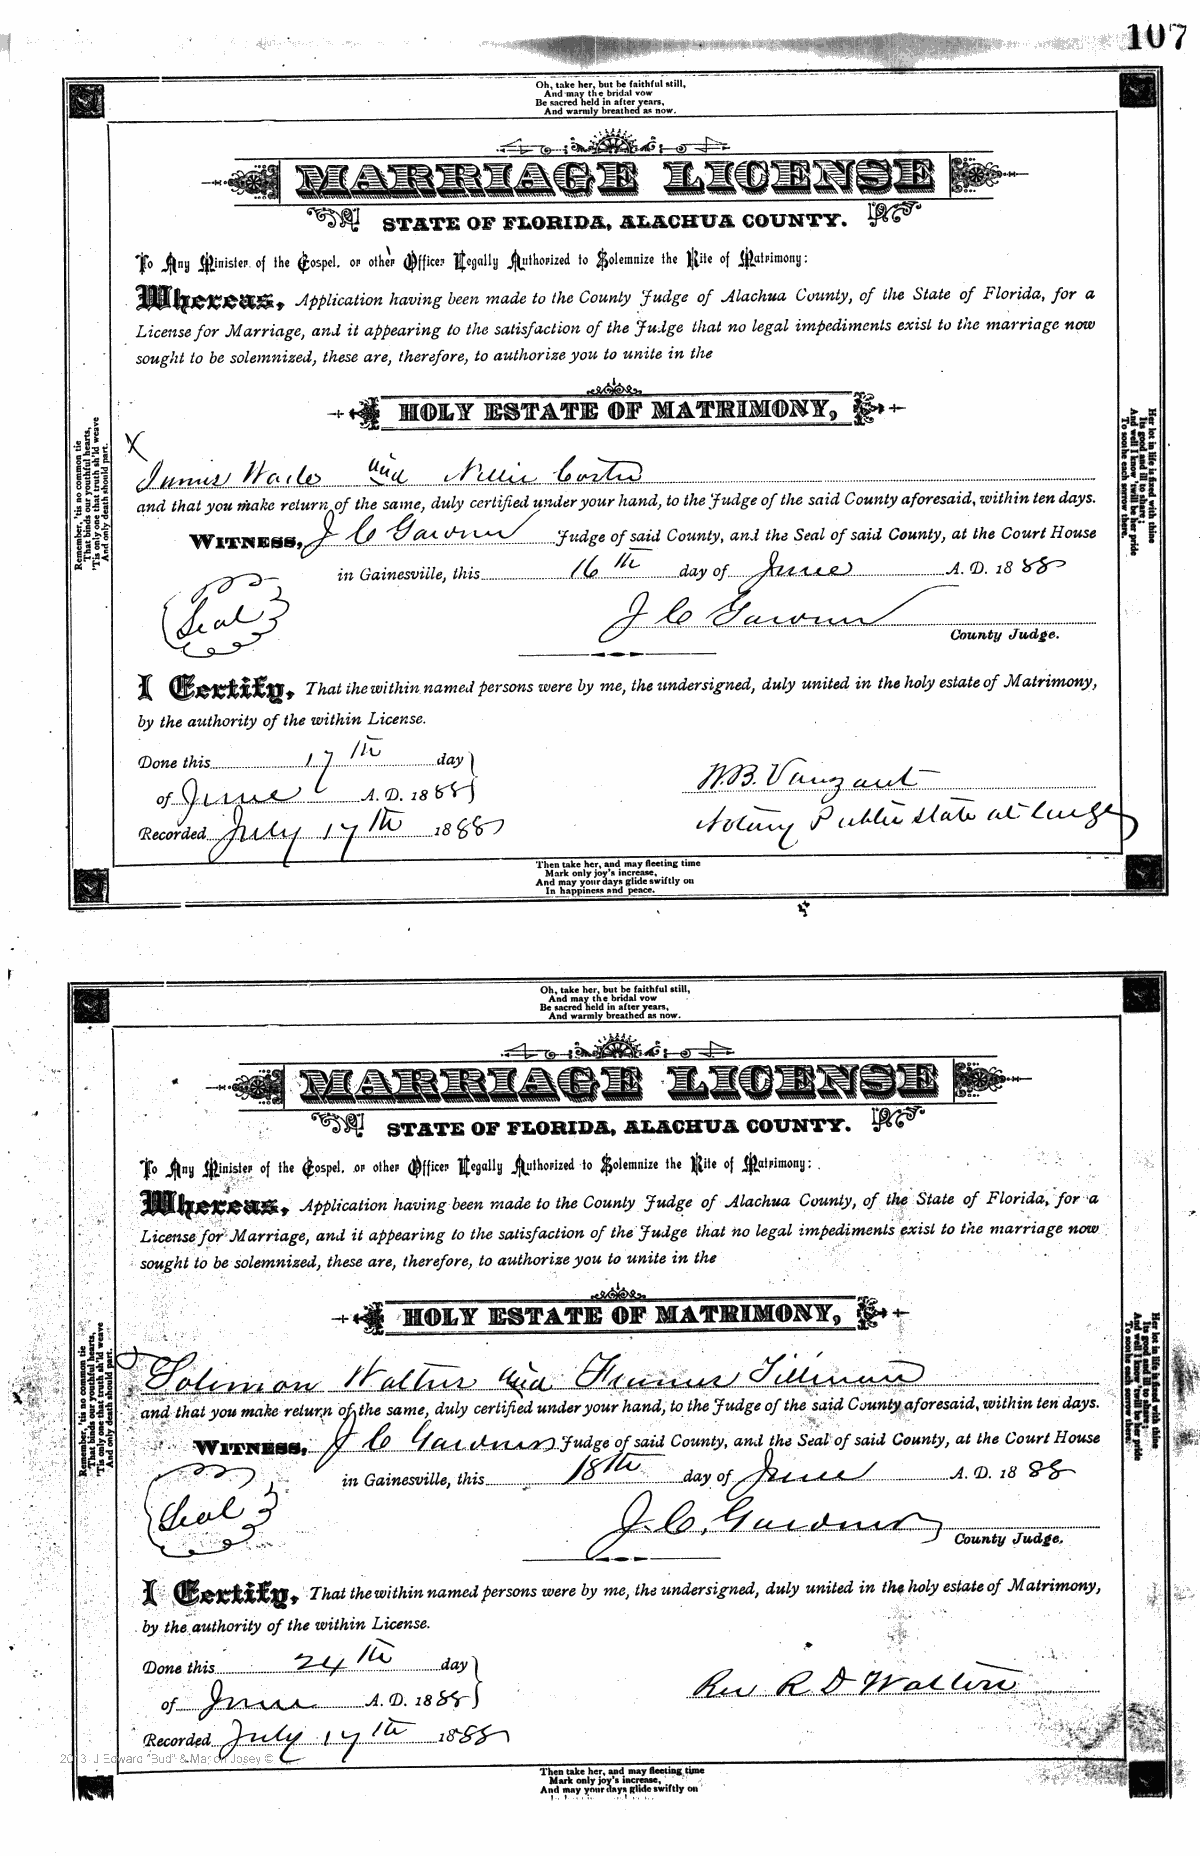 107
Oh, take her, but be faithful still,
And may the bridal vow
Be sacred held in after years,
And warmly breathed as now.
MARRIAGE LICENSE
STATE OF FLORIDA, ALACHUA COUNTY.
To Any Minister of the Gospel, or other Officer Legally Authorized to Solemnize the Rite of Matrimony:
Whereas, Application having been made to the County Judge of Alachua County, of the State of Florida, for a
License for Marriage, and it appearing to the satisfaction of the Judge that no legal impediments exist to the marriage now
sought to be solemnized, these are, therefore, to authorize you to unite in the
HOLY ESTATE OF MATRIMONY,
X
and Nellie
and that you make return of the same, duly certified under your hand, to the Judge of the said County aforesaid, within ten days.
WITNESS, J C Gardner Judge of said County, and the Seal of said County, at the Court House
in Gainesville, this 16th day of June A. D. 1888
Seal
J C Gardner
County Judge.
I Certify, That the within named persons were by me, the undersigned, duly united in the holy estate of Matrimony,
by the authority of the within License.
Done this 17th day
of June A. D. 1888
W.B. Vanzant
Recorded July 17th 1888
Notary Public State at Large
Remember, 'tis no common tie
That binds our youthful hearts,
'Tis only one that truth sh'ld weave
And only death should part.
Her lot in life is fixed with thine
Its good and ill to share;
And well I know 'twill be her pride
To soothe each sorrow there.
Then take her, and may fleeting time
Mark only joy's increase,
And may your days glide swiftly on
In happiness and peace.
Oh, take her, but be faithful still,
And may the bridal vow
Be sacred held in after years,
And warmly breathed as now.
MARRIAGE LICENSE
STATE OF FLORIDA, ALACHUA COUNTY.
To Any Minister of the Gospel, or other Officer Legally Authorized to Solemnize the Rite of Matrimony:
Whereas, Application having been made to the County Judge of Alachua County, of the State of Florida, for a
License for Marriage, and it appearing to the satisfaction of the Judge that no legal impediments exist to the marriage now
sought to be solemnized, these are, therefore, to authorize you to unite in the
HOLY ESTATE OF MATRIMONY,
Solomon Walters and Frances Tillman
and that you make return of the same, duly certified under your hand, to the Judge of the said County aforesaid, within ten days.
WITNESS, J C Gardner Judge of said County, and the Seal of said County, at the Court House
in Gainesville, this 18th day of June A. D. 1888
Seal
J. C. Gardner
County Judge.
I Certify, That the within named persons were by me, the undersigned, duly united in the holy estate of Matrimony,
by the authority of the within License.
Done this 24th day
of June A. D. 1888
Rev R D Walton
Recorded July 17th 1888
2013 J Edward "Bud" & Marion Josey ©
Remember, 'tis no common tie
That binds our youthful hearts,
'Tis only one that truth sh'ld weave
And only death should part.
Her lot in life is fixed with thine
Its good and ill to share;
And well I know 'twill be her pride
To soothe each sorrow there.
Then take her, and may fleeting time
Mark only joy's increase,
And may your days glide swiftly on